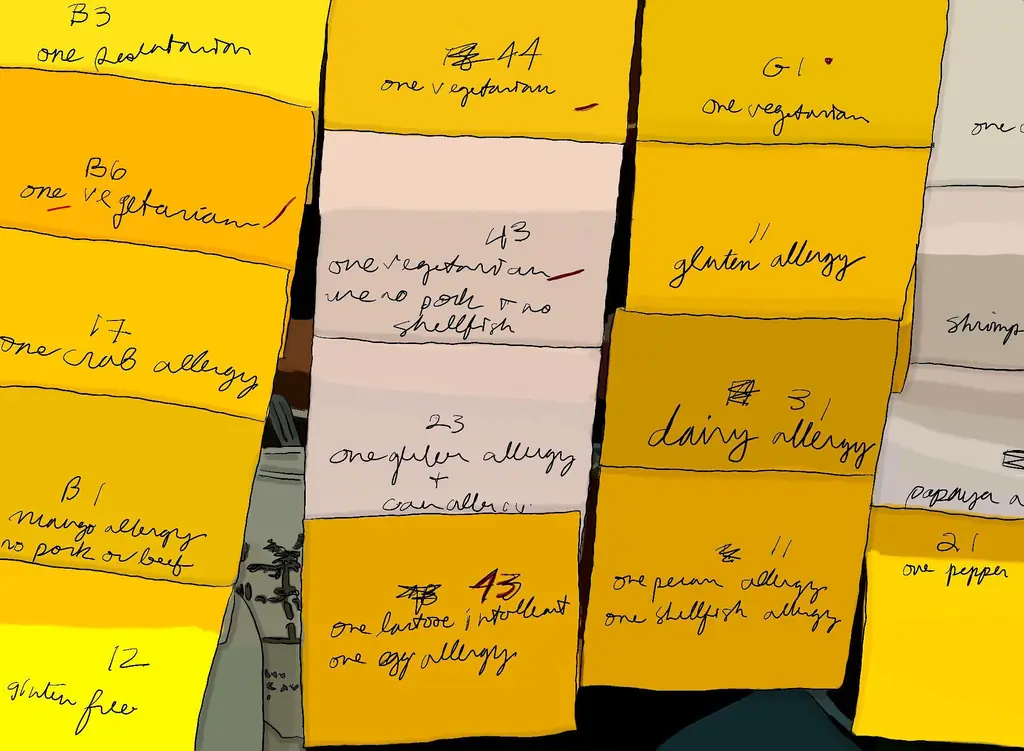 B3
one pescatarian
B6
one vegetarian
17
one crab allergy
B1
mango allergy
no pork or beef
12
gluten free
44
one vegetarian
43
one vegetarian
no pork + no
shellfish
23
one gluten allergy
+
allergy
43
one lactose intolleant
one egg allergy
G1
one vegetarian
11
gluten allergy
31
dairy allergy
11
one pecan allergy
one shellfish allergy
one
shrimp
papaya
21
one pepper